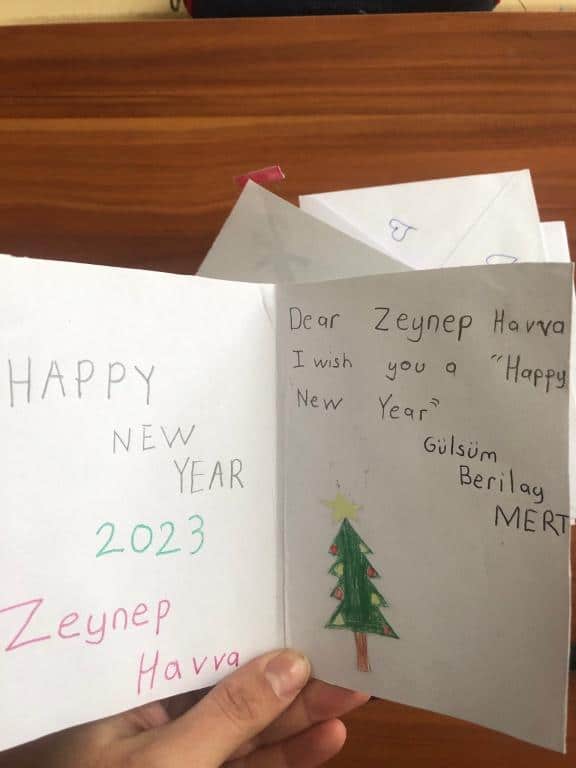 HAPPY
NEW
YEAR
2023
Zeynep
Havva
Dear Zeynep Havva
I wish you a "Happy
New Year"
Gülsüm
Berilay
MERT